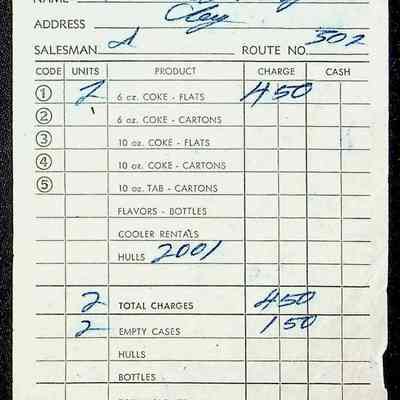 NAME
ADDRESS Cley
SALESMAN A ROUTE NO. 302
CODE UNITS PRODUCT CHARGE CASH
1 2 6 oz. COKE - FLATS 450
2 6 oz. COKE - CARTONS
3 10 oz. COKE - FLATS
4 10 oz. COKE - CARTONS
5 10 oz. TAB - CARTONS
FLAVORS - BOTTLES
COOLER RENTALS
HULLS 2001
2 TOTAL CHARGES 450
2 EMPTY CASES 150
HULLS
BOTTLES